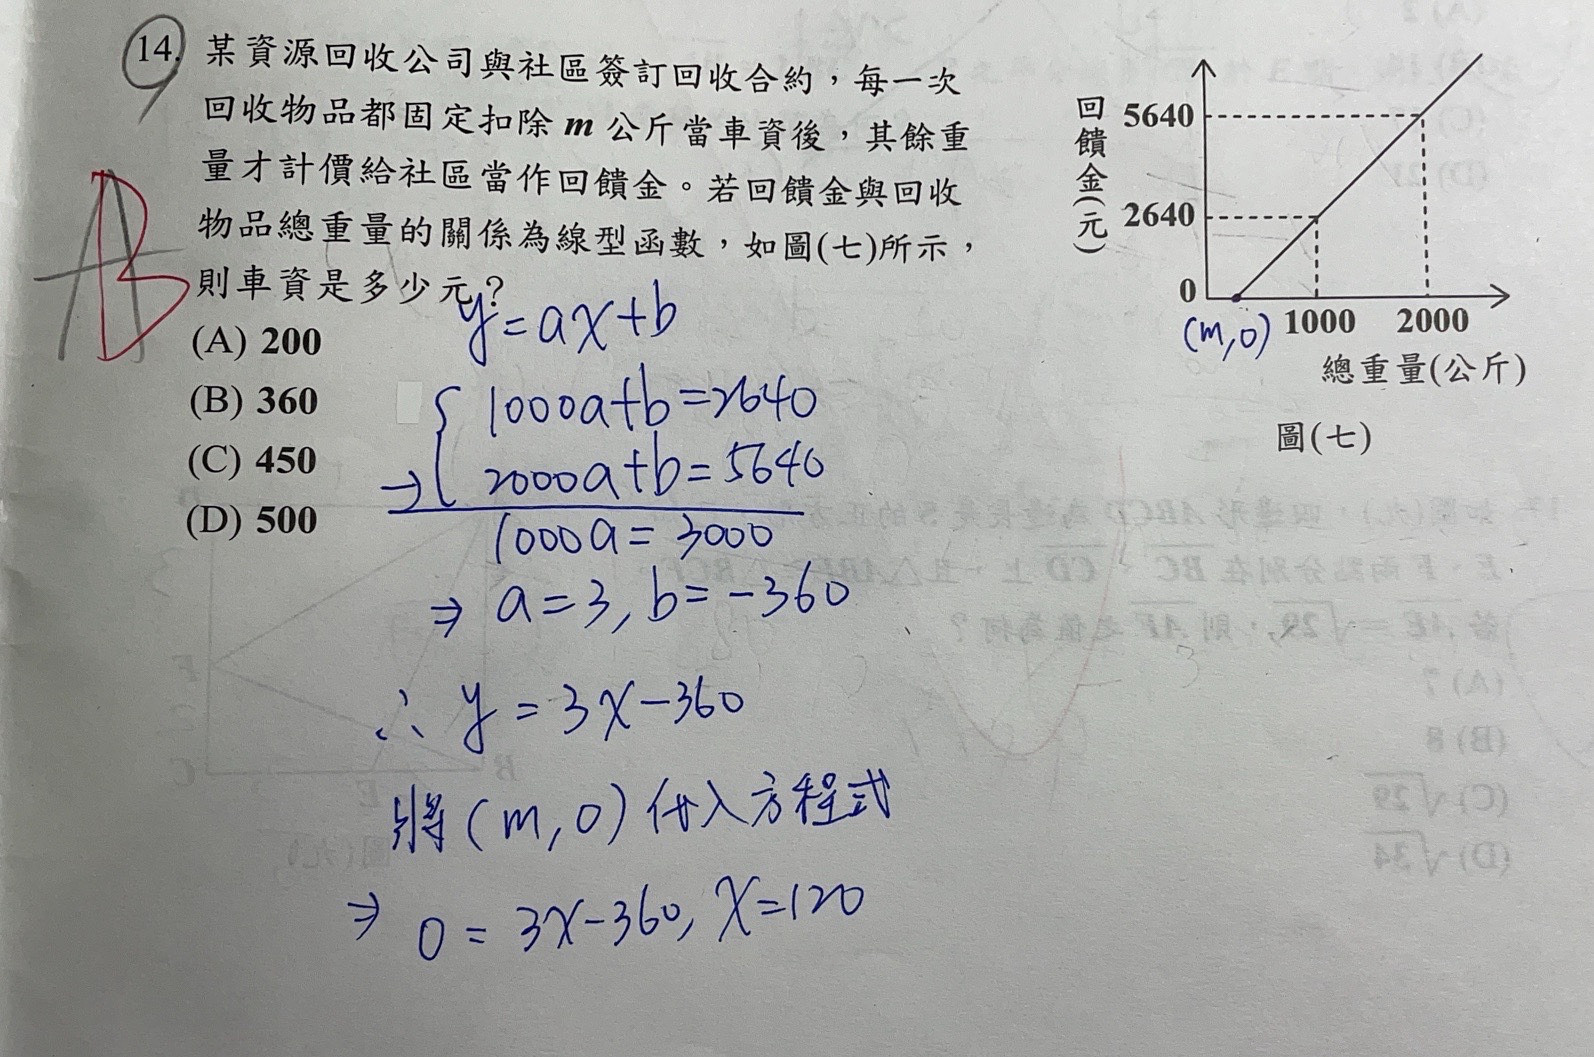 14. 某資源回收公司與社區簽訂回收合約，每一次
回收物品都固定扣除 m 公斤當車資後，其餘重
量才計價給社區當作回饋金。若回饋金與回收
物品總重量的關係為線型函數，如圖(七)所示，
則車資是多少元？
(A) 200
(B) 360
(C) 450
(D) 500
A
B
回饋金(元)
5640
2640
0
(m,0)
1000
2000
總重量(公斤)
圖(七)
y=ax+b
1000a+b=2640
→ 2000a+b=5640
1000a=3000
⇒ a=3, b=-360
∴ y=3x-360
將(m,0)代入方程式
⇒ 0=3x-360, x=120